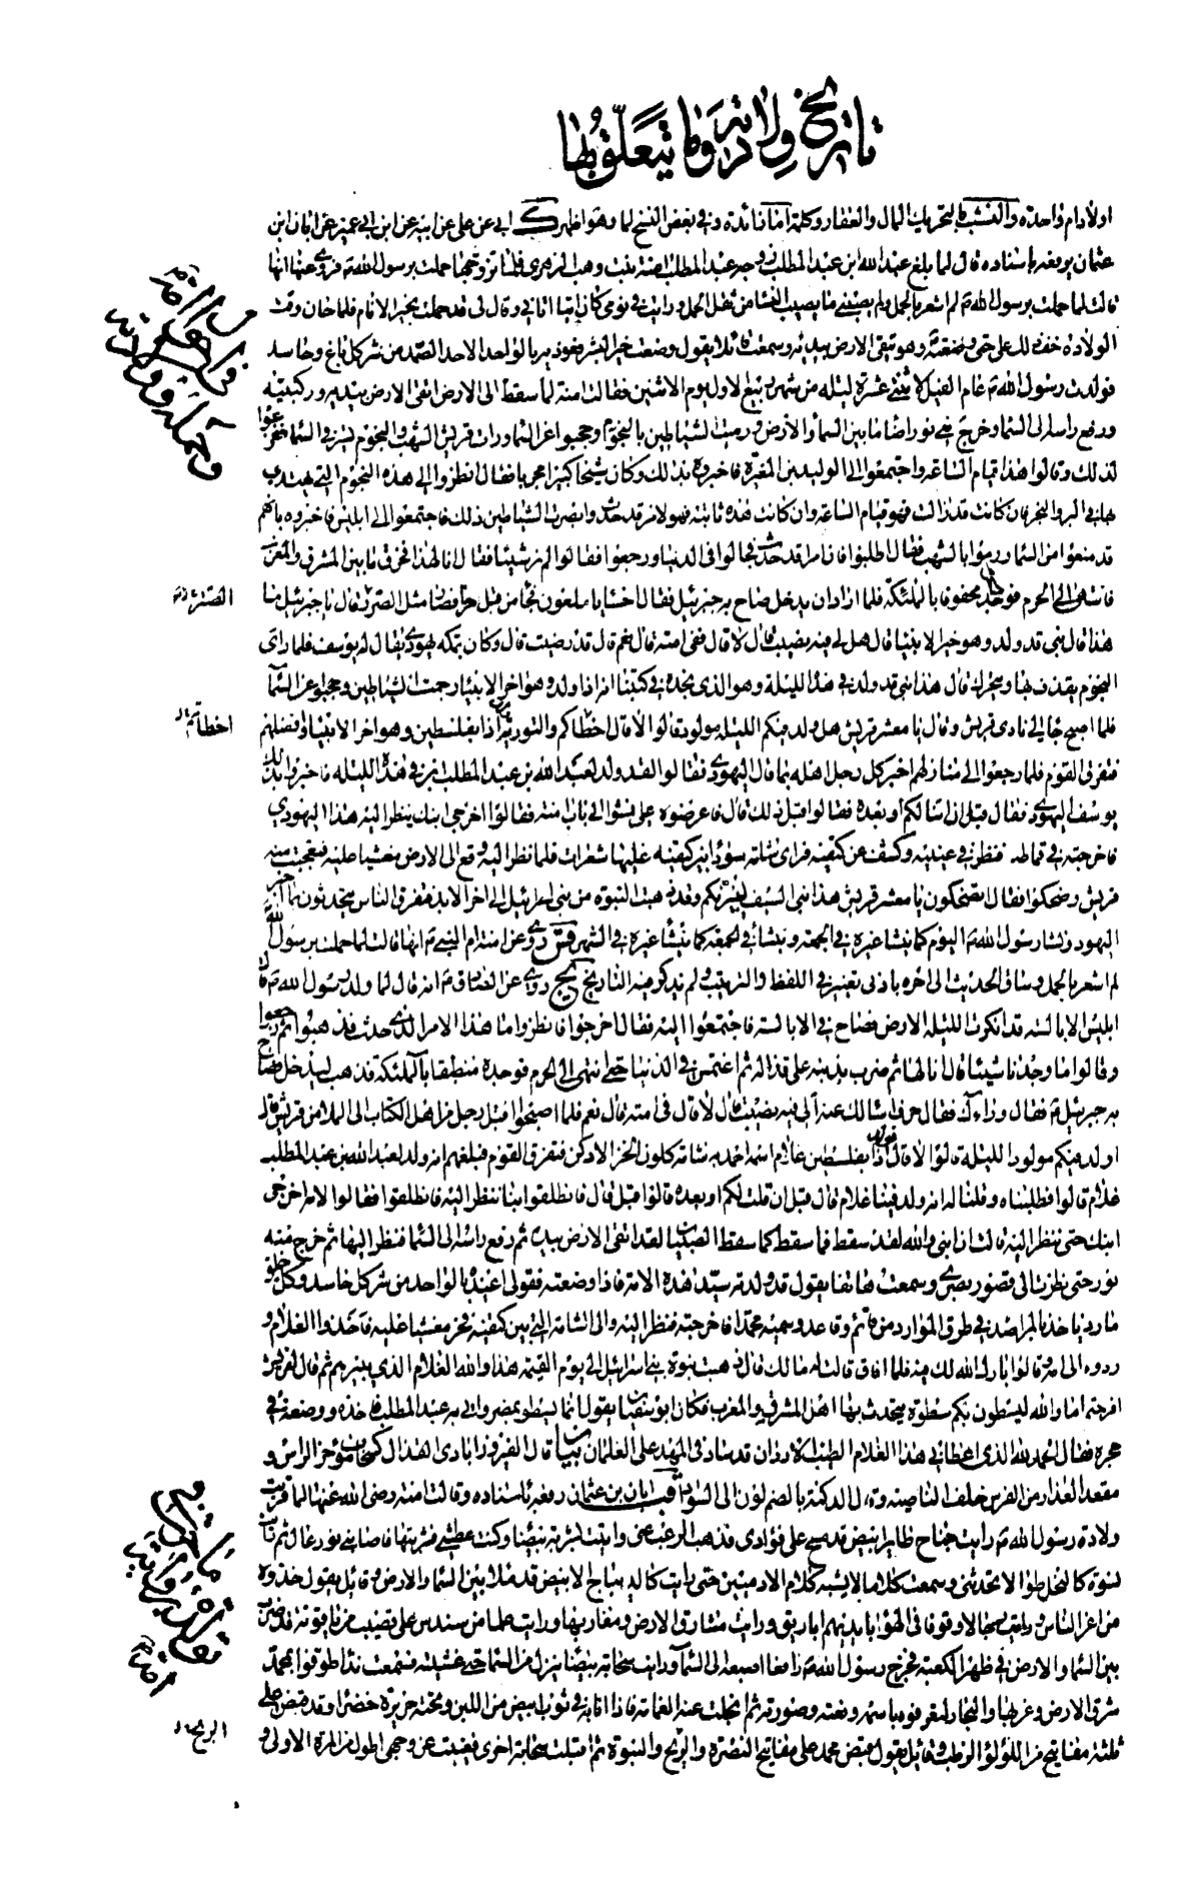 تاريخ ولادته وما يتعلق بها
اولاد ام واحدة والنشب بالتحريك المال والعقار وكلمة اما زائدة وفي بعض النسخ لما وهو اظهر ك ابي عن علي عن ابيه عن ابن ابي عمير عن ابان ابن
عثمان يرفعه باسناده قال لما بلغ عبد الله ابن عبد المطلب زوجه عبد المطلب امنة بنت وهب الزهري فلما تزوج بها حملت برسول الله ص فروي عنها انها
قالت لما حملت برسول الله ص لم اشعر بالحمل ولم يصبني ما يصيب النساء من ثقل الحمل ورايت في نومي كان اتيا اتاني وقال لي قد حملت بخير الانام فلما حان وقت
الولادة خف ذلك علي حتى وضعته وهو يتقي الارض بيديه وسمعت قائلا يقول وضعت خير البشر فعوذيه بالواحد الاحد الصمد من شر كل باغ وحاسد
فولدت رسول الله ص عام الفيل لاثنتي عشرة ليلة من شهر ربيع الاول يوم الاثنين فقالت امنة لما سقط الى الارض اتقى الارض بيديه وركبتيه
ورفع راسه الى السماء وخرج مني نور اضاء ما بين السماء والارض ورميت الشياطين بالنجوم وحجبوا عن السماء ورات قريش الشهب والنجوم تسير في السماء ففزعوا
لذلك وقالوا هذا قيام الساعة واجتمعوا الى الوليد بن المغيرة فاخبروه بذلك وكان شيخا كبيرا مجربا فقال انظروا الى هذه النجوم التي يهتدى
بها في البر والبحر فان كانت قد زالت فهو قيام الساعة وان كانت هذه ثابتة فهو لامر قد حدث وابصرت الشياطين ذلك فاجتمعوا الى ابليس فاخبروه بانهم
قد منعوا من السماء ورموا بالشهب فقال اطلبوا فان امرا قد حدث فجالوا في الدنيا ورجعوا فقالوا لم نر شيئا فقال انا لهذا فخرق ما بين المشرق والمغرب
فانتهى الى الحرم فوجد محفوفا بالملئكة فلما اراد ان يدخل صاح به جبرئيل فقال اخسا يا ملعون فجاء من قبل حراء فصار مثل الصر قال يا جبرئيل ما
هذا قال نبي قد ولد وهو خير الانبياء قال هل لي فيه نصيب قال لا قال ففي امته قال نعم قال قد رضيت قال وكان بمكة يهودي يقال له يوسف فلما راى
النجوم يقذف بها وتتحرك قال هذا نبي قد ولد في هذا الليلة وهو الذي نجده في كتبنا انه اذا ولد وهو اخر الانبياء رجمت الشياطين وحجبوا عن السماء
فلما اصبح جاء الى نادي قريش وقال يا معشر قريش هل ولد فيكم الليلة مولود قالوا لا قال خطاكم والتورية ولد اذا بفلسطين وهو اخر الانبياء وافضلهم
فتفرق القوم فلما رجعوا الى منازلهم اخبر كل رجل اهله بما قال اليهودي فقالوا لقد ولد لعبد الله بن عبد المطلب ابن في هذه الليلة فاخبروا بذلك
يوسف اليهودي فقال قبل ان اسالكم او بعده فقالوا قبل ذلك قال فاعرضوه علي فمشوا الى باب امنة فقالوا اخرجي ابنك ينظر اليه هذا اليهودي
فاخرجته في قماطه فنظر في عينيه وكشف عن كتفيه فراى شامة سوداء بين كتفيه عليها شعرات فلما نظر اليه وقع الى الارض مغشيا عليه فتعجبت منه
قريش وضحكوا فقال اتضحكون يا معشر قريش هذا نبي السيف ليبيرنكم وقد ذهبت النبوة من بني اسرائيل الى اخر الابد وتفرق الناس يتحدثون بخبر
اليهود ونشا رسول الله ص اليوم كما ينشا غيره في الجمعة وينشا في الجمعة كما ينشا غيره في الشهر قب روي عن امنة ام النبي ص انها قالت لما حملت برسول الله
لم اشعر بالحمل وساق الحديث الى اخره بادنى تغيير في اللفظ والترتيب ولم يذكر فيه التاريخ يج روي عن الصادق ع انه قال لما ولد رسول الله ص قال
ابليس الابالسة قد انكرت الليلة الارض فصاح في الابالسة فاجتمعوا اليه فقال اخرجوا فانظروا ما هذا الامر الذي حدث فذهبوا ثم رجعوا
وقالوا ما وجدنا شيئا قال انا لها ثم ضرب بذنبه على قذاله ثم اغتمس في الدنيا حتى انتهى الى الحرم فوجده منطبقا بالملئكة فذهب ليدخل فصاح
به جبرئيل ع فقال وراءك فقال حرف اسالك عنه الي فيه نصيب قال لا قال في امته قال نعم فلما اصبحوا اقبل رجل من اهل الكتاب الى الملا من قريش فقال
اولد فيكم مولود الليلة قالوا لا قال فولد اذا بفلسطين غلام اسمه احمد به شامة كلون الخز الادكن فتفرق القوم فبلغهم انه ولد لعبد الله بن عبد المطلب
غلام قالوا فطلبناه وقلنا له انه ولد فينا غلام قال قبل ان قلت لكم او بعده قالوا قبل قال فانطلقوا بنا ننظر اليه فانطلقوا فقالوا لامه اخرجي
ابنك حتى ننظر اليه قالت ان ابني والله لقد سقط فما سقط كما سقط الصبيان لقد اتقى الارض بيديه ثم رفع راسه الى السماء فنظر اليها ثم خرج منه
نور حتى نظرت الى قصور بصرى وسمعت هاتفا يقول قد ولدته سيد هذه الامة فاذا وضعته فقولي اعيذه بالواحد من شر كل حاسد وكل خلق
مارد ياخذ بالمراصد في طرق الموارد من قائم وقاعد وسميه محمدا فاخرجته فنظر اليه والى الشامة التي بين كتفيه فخر مغشيا عليه فاخذوا الغلام و
ردوه الى امه وقالوا بارك الله لك فيه فلما افاق قالت له مالك قال ذهبت نبوة بني اسرائيل الى يوم القيمة هذا والله الغلام الذي يبيرهم ثم قال لقريش
افرحتم اما والله ليسطون بكم سطوة يتحدث بها اهل المشرق والمغرب فكان ابو سفيان يقول انما يسطو بمضر واتي به عبد المطلب فاخذه ووضعه في
حجره فقال الحمد لله الذي اعطاني هذا الغلام الطيب الاردان قد ساد في المهد على الغلمان بيان قال الفيروزابادي القذال كسحاب مؤخر الراس و
معقد العذار من الفرس خلف الناصية وقال الدكنة بالضم لون الى السواد قب ابان بن عثمان رفعه باسناده وقالت امنة رضي الله عنها لما قربت
ولادة رسول الله ص رايت جناح طاير ابيض قد مسح على فؤادي فذهب الرعب عني واتيت بشربة بيضاء وكنت عطشى فشربتها فاصابني نور عال ثم رايت
نسوة كالنخل طوالا تحدثني وسمعت كلاما لا يشبه كلام الادميين حتى رايت كالديباج الابيض قد ملا بين السماء والارض وقائل يقول خذوه
من اعز الناس ورايت رجالا وقوفا في الهواء بايديهم اباريق ورايت مشارق الارض ومغاربها ورايت علما من سندس على قضيب من ياقوتة قد ضرب
بين السماء والارض في ظهر الكعبة فخرج رسول الله ص رافعا اصبعه الى السماء ورايت سحابة بيضاء تنزل من السماء حتى غشيته فسمعت نداء طوفوا بمحمد
شرق الارض وغربها والبحار ليعرفوه باسمه ونعته وصورته ثم انجلت عنه الغمامة فاذا انا به في ثوب ابيض من اللبن وتحته حريرة خضراء وقد قبض على
ثلثة مفاتيح من اللؤلؤ الرطب وقائل يقول قبض محمد على مفاتيح النصرة والريح والنبوة ثم اقبلت سحابة اخرى فغيبت عن وجهي اطول من المرة الاولى و
اخطاتم
الريح